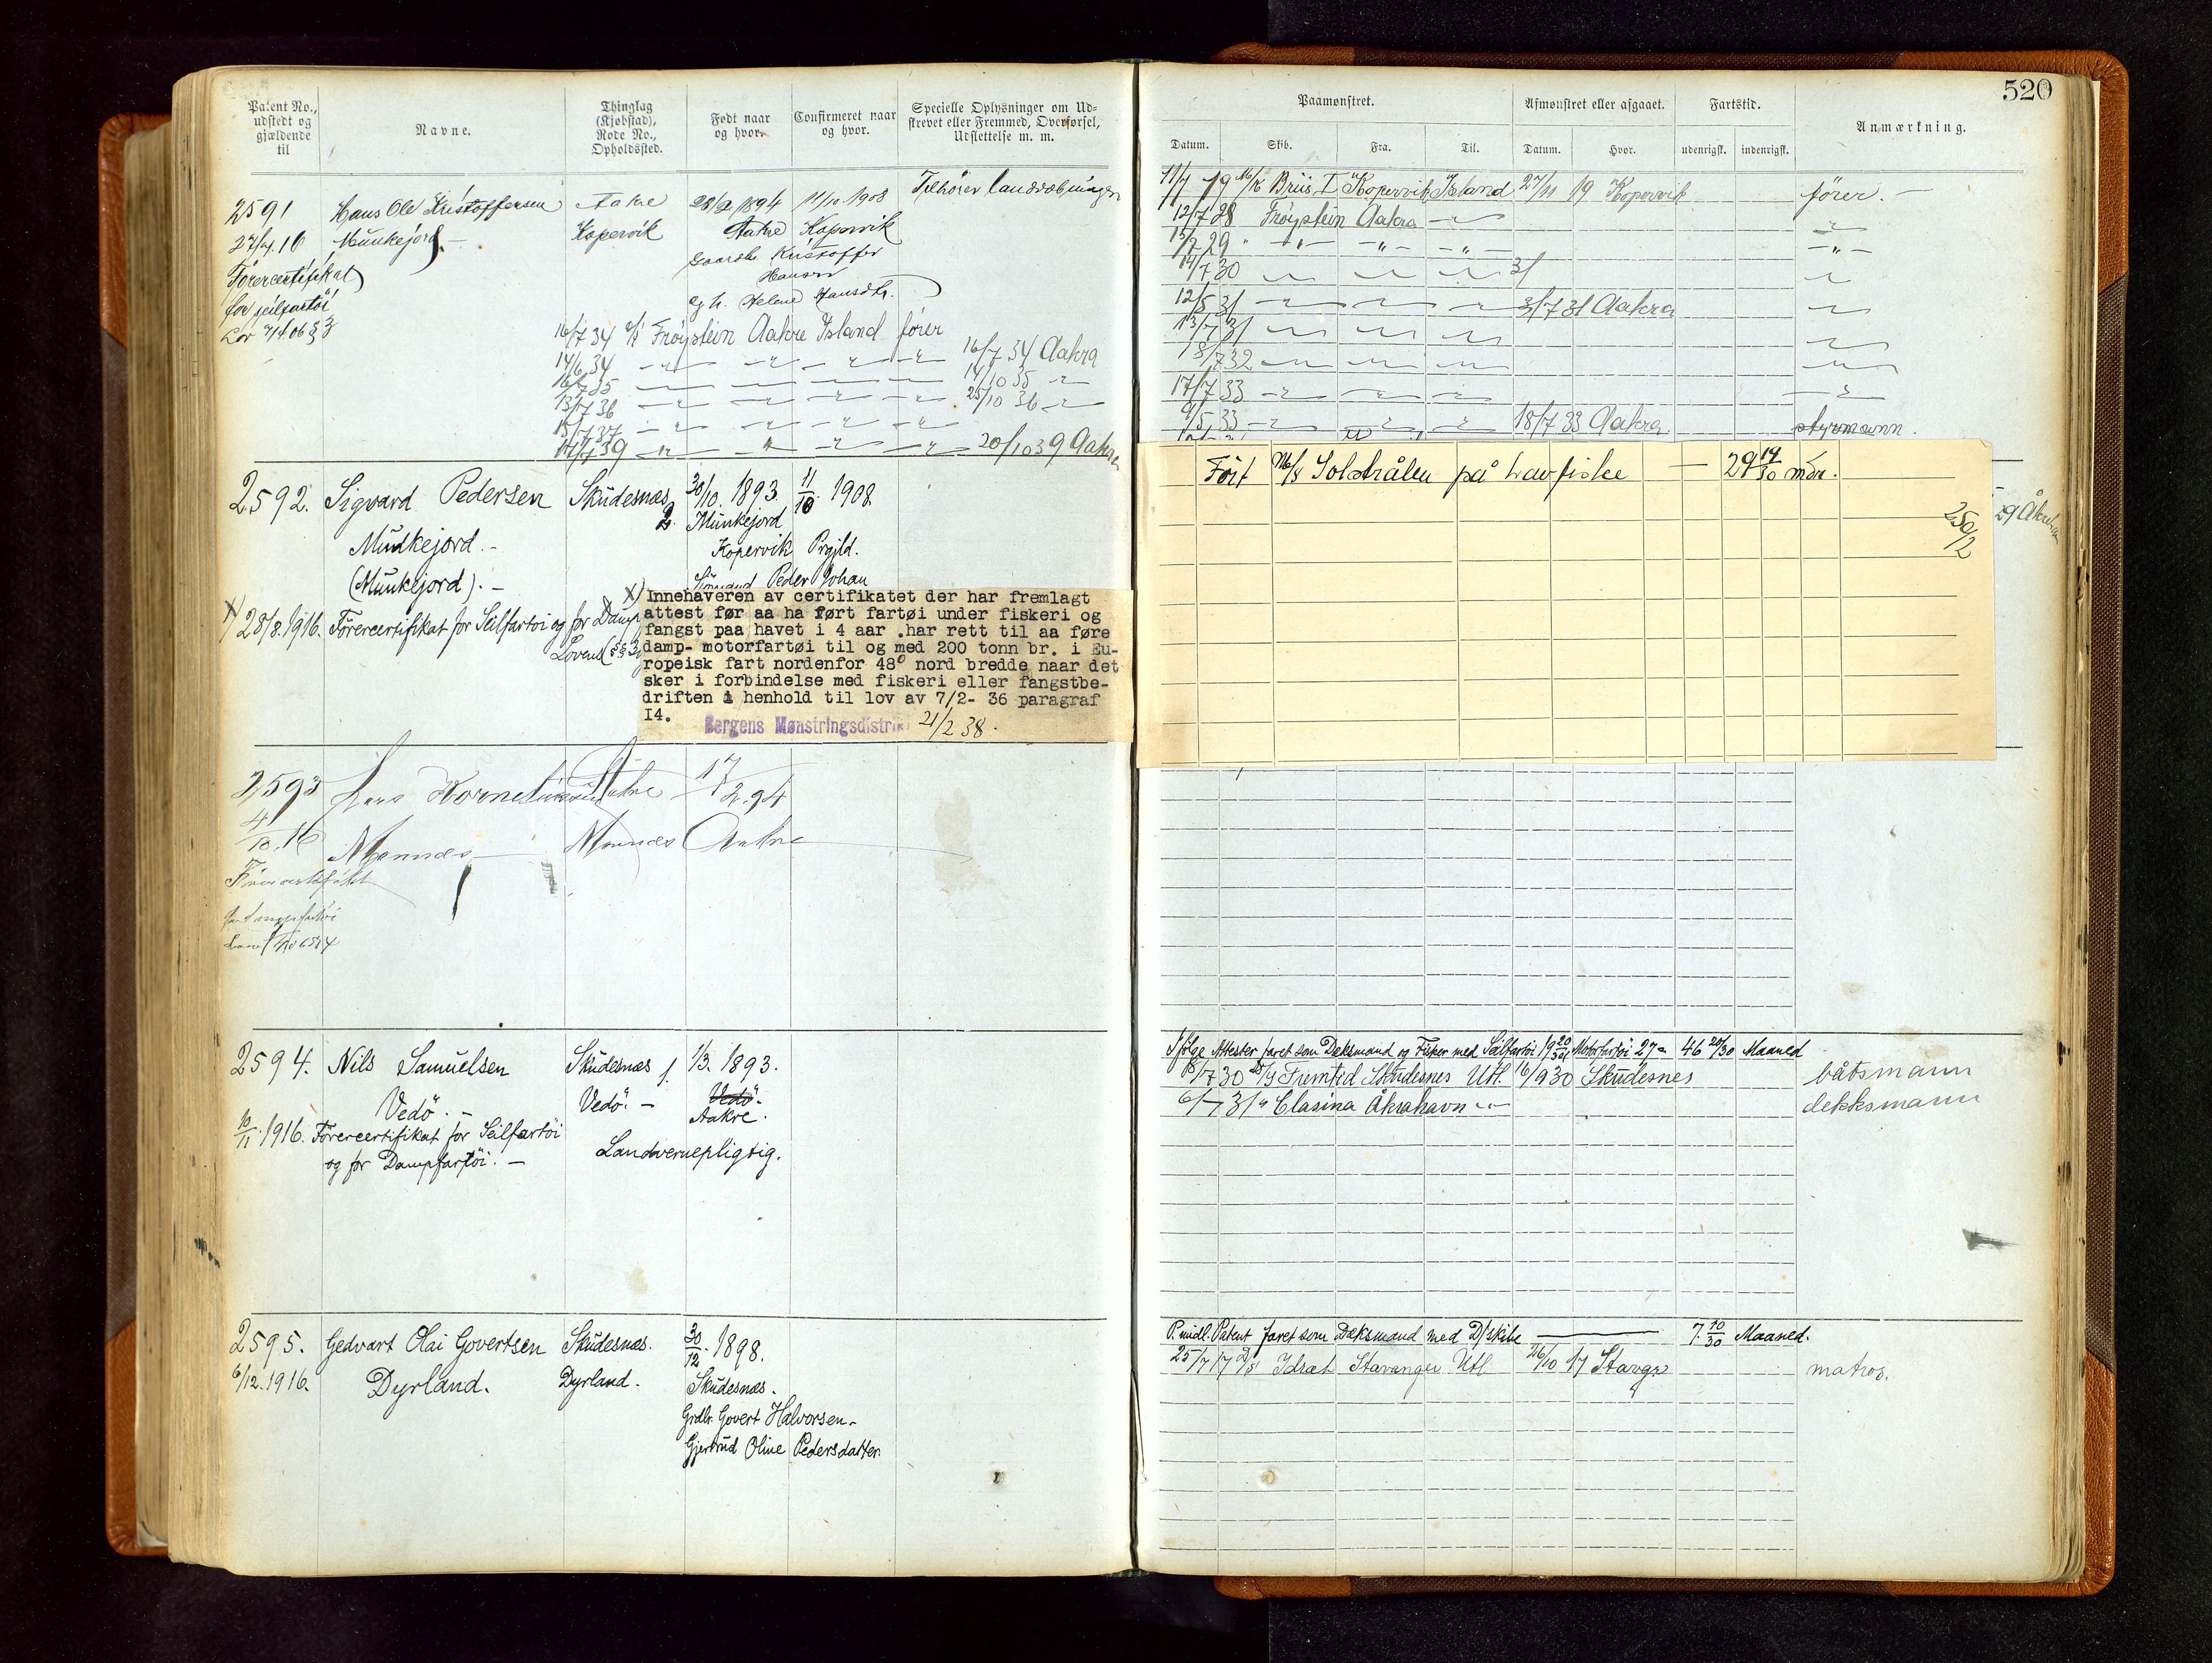 520
Patent No., udstedt og gjældende til
Navne.
Thinglag (Kjøbstad), Rode No., Opholdssted.
Født naar og hvor.
Confirmeret naar og hvor.
Specielle Oplysninger om Udskrevet eller Fremmed, Overførsel, Udslettelse m. m.
Paamønstret.
Afmønstret eller afgaaet.
Fartstid.
Anmærkning.
Datum. Skib. Fra. Til. Datum. Hvor. udenrigsk. indenrigsk.
2591 Hans Ole Kristoffersen Aakre 28/2 1894 11/10 1908 Tilhører landværnet
27/4 16 Munkejord. - Kopervik Aakre Kopervik
Førercertifikat Gaardbr Kristoffer
for seilfartöi Hansen
Lov 7/4 06 § 3 og h. Helene Hansdtr.
16/7 34 Frøystein Aakre Island fører
14/6 34 16/7 34 Aakra
16/7 35 14/10 35
13/7 36 25/10 36
15/7 37
14/7 39 20/10 39 Aakra
11/7 19 M/k Briis I Kopervik Island 27/11 19 Kopervik fører. -
12/7 28 Frøystein Aakra
15/7 29
14/7 30
12/5 31 3/7 31 Aakra
13/7 31
18/7 32
17/7 33
9/5 33 18/7 33 Aakra styrmann.
2592. Sigvard Pedersen Skudesnæs 2. 30/10. 1893. 11/10. 1908
Munkejord. - Munkejord
(Munkejord). - Kopervik Prgjld.
Sjømand Peder Johan
x) 28/8. 1916. Förercertifikat for Seilfartöi og for Damp
Lovens (§§ 3
x) Innehaveren av certifikatet der har fremlagt
attest før aa ha ført fartøi under fiskeri og
fangst paa havet i 4 aar .har rett til aa føre
damp- motorfartøi til og med 200 tonn br. i Eu-
ropeisk fart nordenfor 48° nord bredde naar det
sker i forbindelse med fiskeri eller fangstbe-
driften i henhold til lov av 7/2- 36 paragraf
I4.
Bergens Mønstringsdistri 21/2 38.
Fört M/k Solstrålen på havfiske — 29 19/30 mdr.
250/2
29 Åkreha
2593 Lars Korneliussen Aakre 17/2.94
4/10. 16 Mannes Mannes Aakre
Førercertifikat
for Dampfartöi
2594. Nils Samuelsen Skudesnæs 1. 1/3. 1893.
Vedö. - Vedö. - Vedö.
Aakre.
10/11. 1916. Förercertifikat for Seilfartöi
og for Dampfartöi. - Landvernepligtig.
Ifölge Attester faret som Dæksmand og Fisker med Seilfartöi 19 20/30 Motorfartöi 27 = 46 20/30 Maaned
8/7 30 Fremtid Skudesnes Utl. 16/9 30 Skudesnes båtsmann
6/7 31 Clasina Åkrahavn dekksmann
2595. Gedvart Olai Govertsen Skudesnæs. 30/12. 1898.
6/12. 1916. Dyrland. Dyrland. Skudesnæs.
Grdbr. Govert Halvorsen -
Gjertrud Oline Pedersdatter.
P. midl. Patent faret som Dæksmand med D/skibe — 7. 10/30 Maaned.
25/7 17 D/s Idræt Stavanger Utl 26/10 17 Stavgr matros.